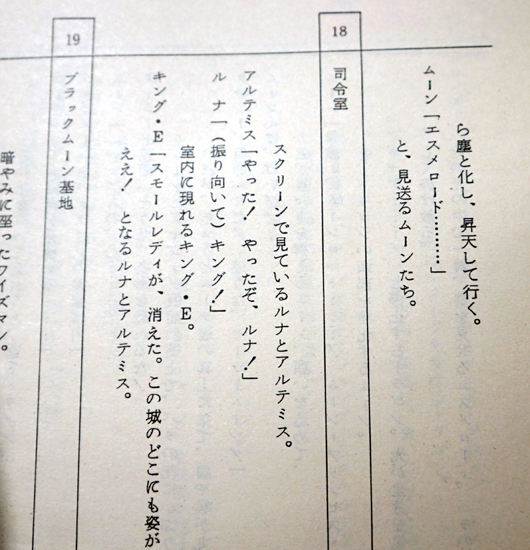 ら塵と化し、昇天して行く。
ムーン「エスメロード………」
と、見送るムーンたち。
18
司令室
スクリーンで見ているルナとアルテミス。
アルテミス「やった!　やったぞ、ルナ!」
ルナ「(振り向いて)キング!」
室内に現れるキング・E。
キング・E「スモールレディが、消えた。この城のどこにも姿が
ええ!　となるルナとアルテミス。
19
ブラックムーン基地
暗やみに座ったワイズマン。